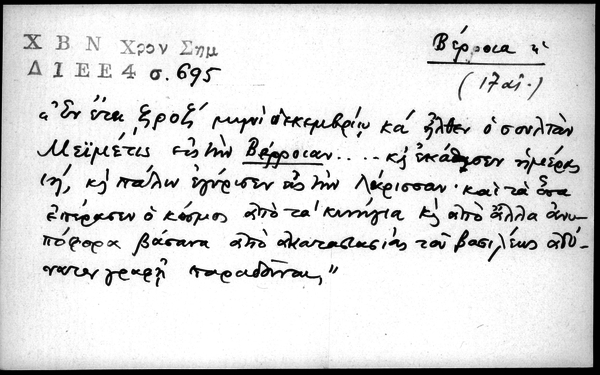 Χ Β Ν Χρον Σημ
Δ Ι Ε Ε 4 σ. 695
Βέρροια
(17 αἰ.)
"Ἐν ἔτει ζροζ΄ μηνὶ δεκεμβρίῳ κά ἦλθεν ὁ σουλτὰν
Μεϊμέτις εἰς τὴν Βέρροιαν.... κ ἐκάθησεν ἡμέρας
ιή, κ πάλιν ἐγύρισεν εἰς τὴν Λάρισσαν· καὶ τὰ ὅσα
ἐπέρασεν ὁ κόσμος ἀπὸ τὰ κυνήγια κ ἀπὸ ἄλλα ἀνυ-
πόφορα βάσανα ἀπὸ ἀκαταστασίας τοῦ βασιλέως ἀδύ-
νατον γραφῇ παραδοῦναι"